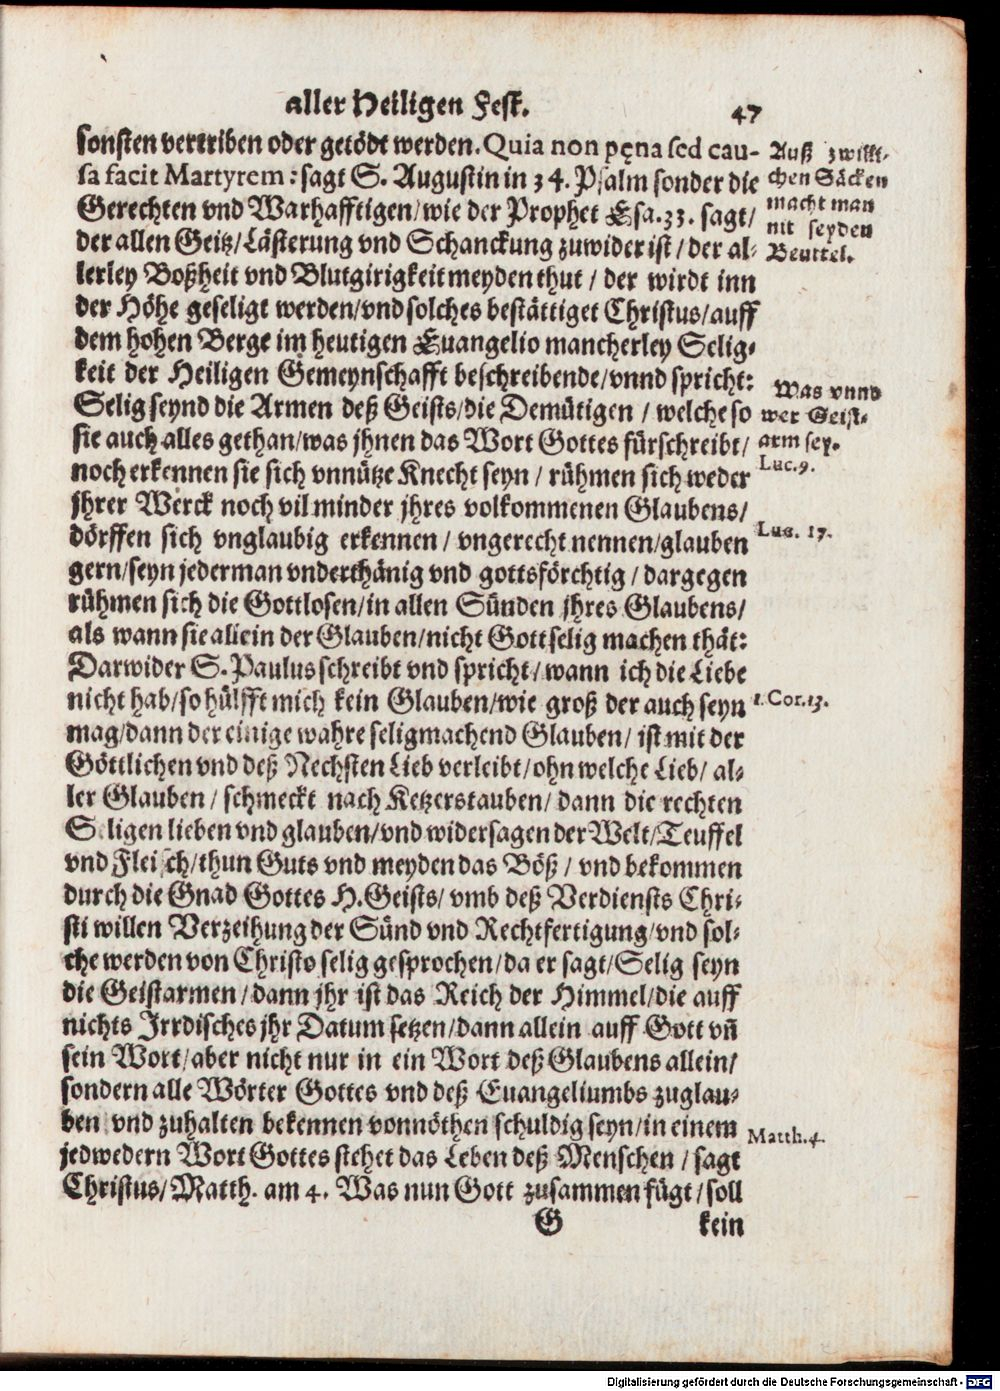 aller Heiligen Fest. 47
sonsten vertriben oder getödt werden. Quia non pęna sed cau-
sa facit Martyrem: sagt S. Augustin in 34. Psalm sonder die
Gerechten vnd Warhafftigen/wie der Prophet Esa. 33. sagt/
der allen Geitz/Lästerung vnd Schanckung zuwider ist/der al-
lerley Boßheit vnd Blutgirigkeit meyden thut/der wirdt inn
der Höhe geseligt werden/vnd solches bestättiget Christus/auff
dem hohen Berge im heutigen Euangelio mancherley Selig-
keit der Heiligen Gemeynschafft beschreibende/vnnd spricht:
Selig seynd die Armen deß Geists/die Demütigen/welche so
sie auch alles gethan/was jhnen das Wort Gottes fürschreibt/
noch erkennen sie sich vnnütze Knecht seyn/rühmen sich weder
jhrer Werck noch vil minder jhres volkommenen Glaubens/
dörffen sich vnglaubig erkennen/vngerecht nennen/glauben
gern/seyn jederman vnderthänig vnd gottsförchtig/dargegen
rühmen sich die Gottlosen/in allen Sünden jhres Glaubens/
als wann sie allein der Glauben/nicht Gottselig machen thät:
Darwider S. Paulus schreibt vnd spricht/wann ich die Liebe
nicht hab/so hülfft mich kein Glauben/wie groß der auch seyn
mag/dann der einige wahre seligmachend Glauben/ist mit der
Göttlichen vnd deß Nechsten Lieb verleibt/ohn welche Lieb/al-
ler Glauben/schmeckt nach Ketzerstauben/dann die rechten
Seligen lieben vnd glauben/vnd widersagen der Welt/Teuffel
vnd Fleisch/thun Guts vnd meyden das Böß/vnd bekommen
durch die Gnad Gottes H. Geists/vmb deß Verdiensts Chri-
sti willen Verzeihung der Sünd vnd Rechtfertigung/vnd sol-
che werden von Christo selig gesprochen/da er sagt/Selig seyn
die Geistarmen/dann jhr ist das Reich der Himmel/die auff
nichts Irrdisches jhr Datum setzen/dann allein auff Gott vñ
sein Wort/aber nicht nur in ein Wort deß Glaubens allein/
sondern alle Wörter Gottes vnd deß Euangeliumbs zuglau-
ben vnd zuhalten bekennen vonnöthen schuldig seyn/in einem
jedwedern Wort Gottes stehet das Leben deß Menschen/sagt
Christus/Matth. am 4. Was nun Gott zusammen fügt/soll
G kein
Auß zwilli-
chen Säcken
macht man
nit seyden
Beuttel.
Was vnnd
wer Geist-
arm sey.
Luc. 9.
Luc. 17.
1. Cor. 13.
Matth. 4.
Digitalisierung gefördert durch die Deutsche Forschungsgemeinschaft - DFG